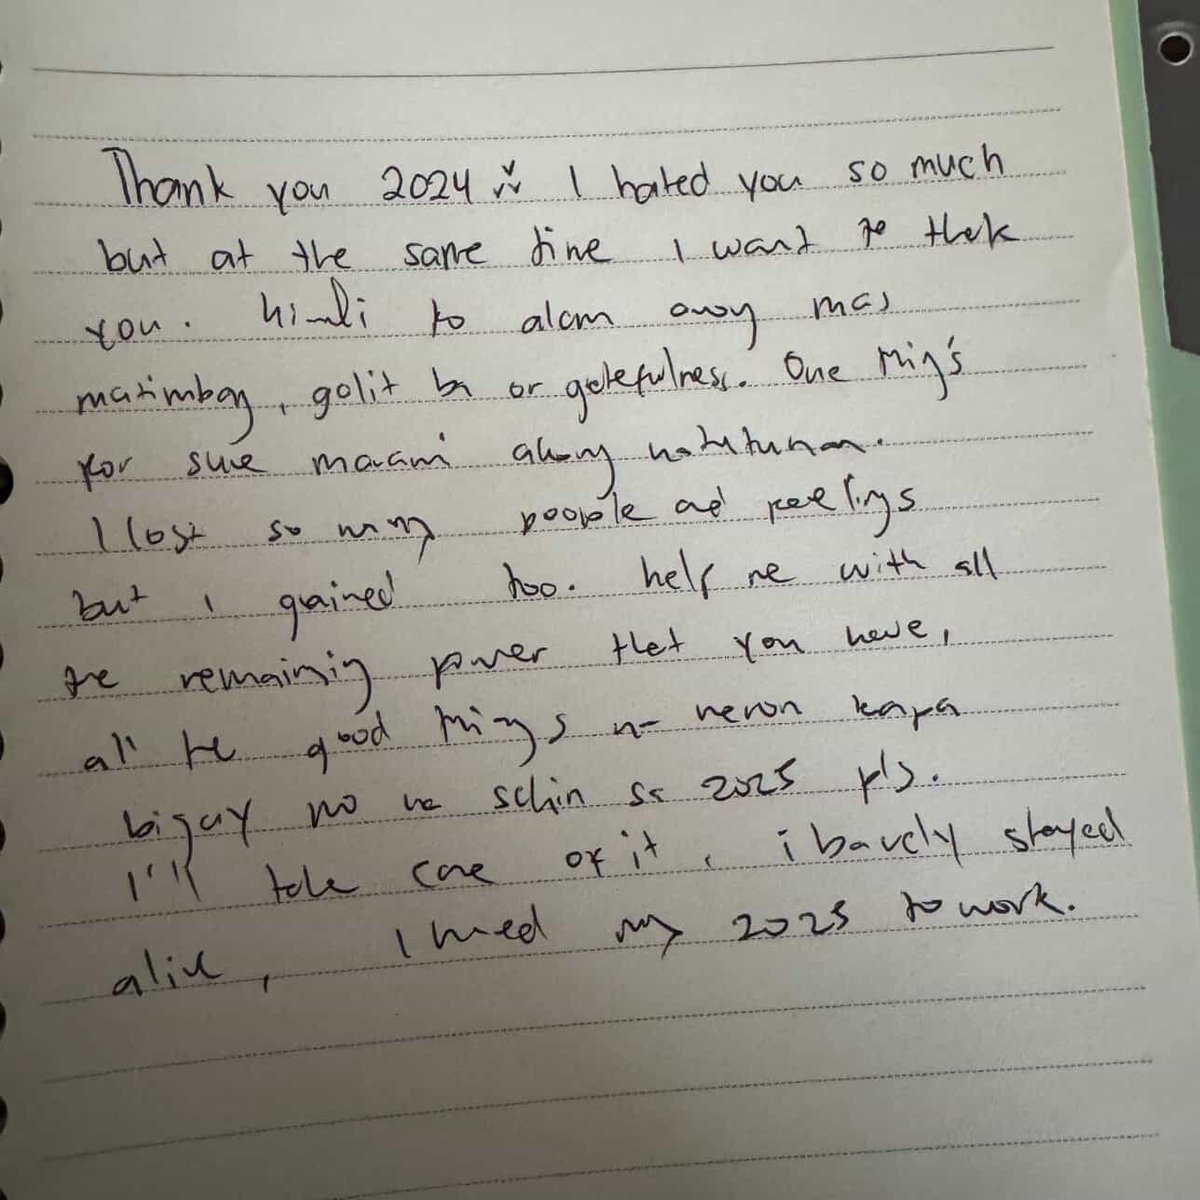 Thank you 2024 I hated you so much
but at the same time I want to thank
you. hindi ko alam anong mas
matimbang, galit ba or gratefulness. One thing's
for sure marami akong natutunan.
I lost so many people and feelings
but i gained too. help me with all
the remaining power that you have,
all the good things na meron kapa
bigay mo na sakin sa 2025 pls.
I'll take care of it, i barely stayed
alive, I need my 2025 to work.